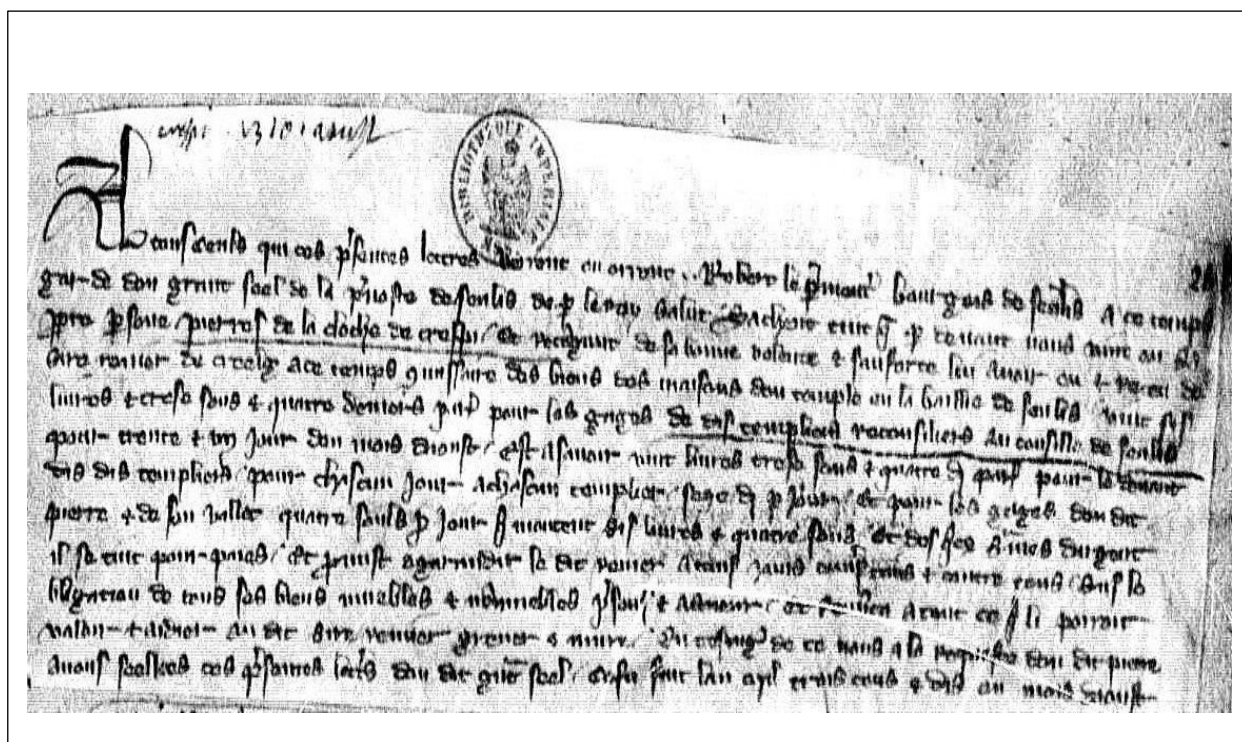 crespi . 1310 . aoust
BIBLIOTHEQUE IMPERIALE MAN.
A tous ceuls qui ces p'sentes lettres verront ou orront . Robert bourgois de senlis a ce temps
garde dou grant seel de la p'uoste de senlis de p le roy salut / Sachent tuit q p deuant nous vint en sa
ppre psone pierres de la cloche de crespi / et recognut de sa bonne volente & sanz force lui auoir eu & receu de
sire renier de creelg a ce temps 9missaire des biens des maisons dou temple en la baillie de senlis / vint sis
liures & trese sous & quatre deniers par' pour les gages de dis templiers reconsiliers au consille de senlis
pour trente & un jour dou mois daoust / cest asauoir vint liures trese sous & quatre d' par' pour le deuant
dis dis templiers / pour chascun jour a chascun templier / seze d' p jour / et pour les gages dou dit
pierre & de son vallet quatre souls p jour q montent sis liures & quatre sous / et des dargent
il se tint pour paies / et pmist agarandir le dit renier a tous jours & outre tous / sus le
bligation de tous ses biens muebles & nonmuebles p'sens & auenir / et a tout ce q li porroit
valoir & aidier au dit sire renier greuer & nuire / En tesmoig' de ce nous a la requeste dou dit pierre
auons seelees ces p'sentes letres dou dit grant seel / ce fu fait lan mil trois cens & dis ou mois daoust